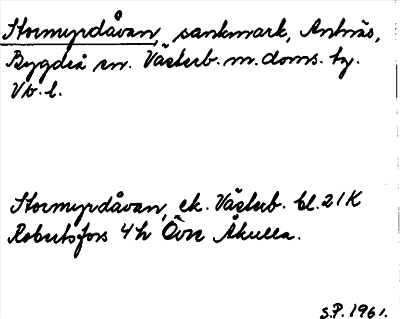 Stormyrdåvan, sankmark, Antnäs,
Bygdeå sn. Västerb. m. doms. tg.
Vb. l.
Stormyrdåvan, ek. Västerb. bl. 21K
Robertsfors 4h Övre Åkulla.
S.P. 1961.